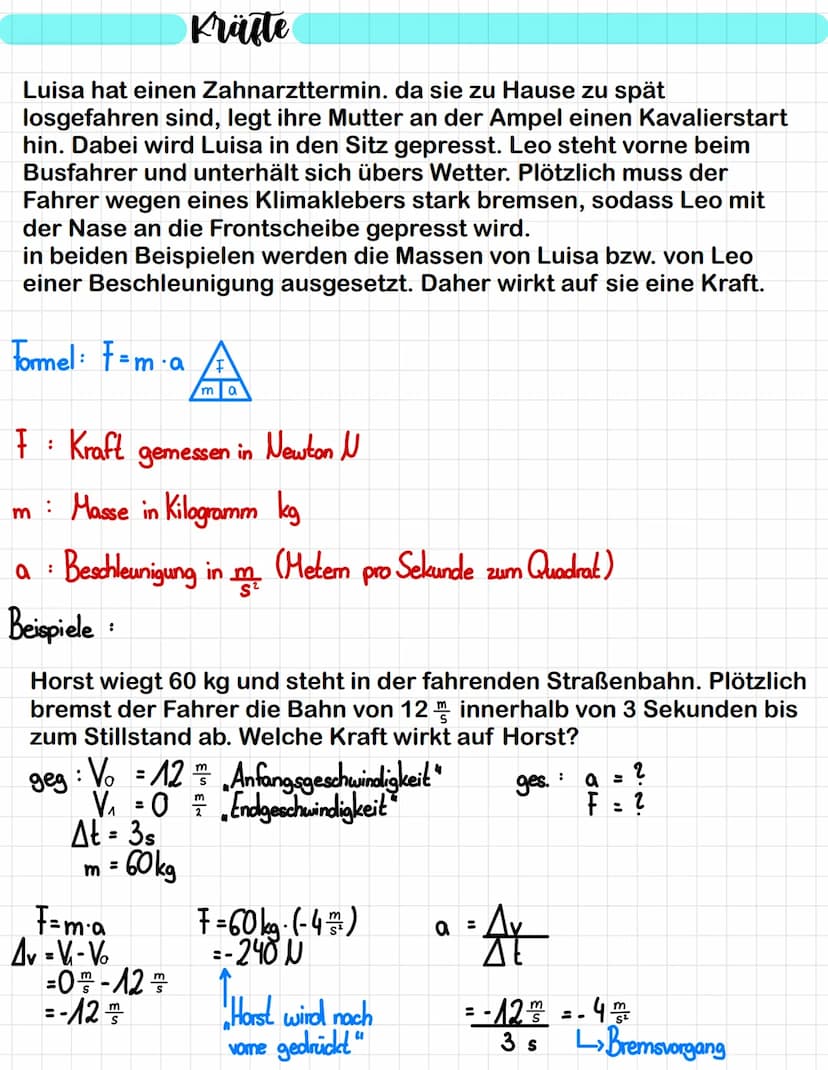 Kräfte
Luisa hat einen Zahnarzttermin. da sie zu Hause zu spät
losgefahren sind, legt ihre Mutter an der Ampel einen Kavalierstart
hin. Dabei wird Luisa in den Sitz gepresst. Leo steht vorne beim
Busfahrer und unterhält sich übers Wetter. Plötzlich muss der
Fahrer wegen eines Klimaklebers stark bremsen, sodass Leo mit
der Nase an die Frontscheibe gepresst wird.
in beiden Beispielen werden die Massen von Luisa bzw. von Leo
einer Beschleunigung ausgesetzt. Daher wirkt auf sie eine Kraft.
Formel: F = m · a
F
m a
F : Kraft gemessen in Newton N
m : Masse in Kilogramm kg
a : Beschleunigung in m/s² (Metern pro Sekunde zum Quadrat)
Beispiele :
Horst wiegt 60 kg und steht in der fahrenden Straßenbahn. Plötzlich
bremst der Fahrer die Bahn von 12 m/s innerhalb von 3 Sekunden bis
zum Stillstand ab. Welche Kraft wirkt auf Horst?
geg : V₀ = 12 m/s „Anfangsgeschwindigkeit“ ges. : a = ?
V₁ = 0 m/2 „Endgeschwindigkeit“ F = ?
Δt = 3s
m = 60kg
F=m·a F=60kg·(-4 m/s²) a = Δv/Δt
Δv = V₁ - V₀ =-240 N
=0 m/s - 12 m/s
=-12 m/s „Horst wird nach = -12 m/s / 3 s = - 4 m/s²
vorne gedrückt“ ↳ Bremsvorgang